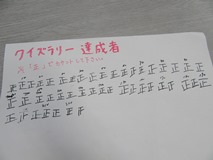 クイズラリー 達成者
※「正」でカウントして下さい
正正正正正正正正正正正正正
正正正正正正正正正正正正正
正正正正正正